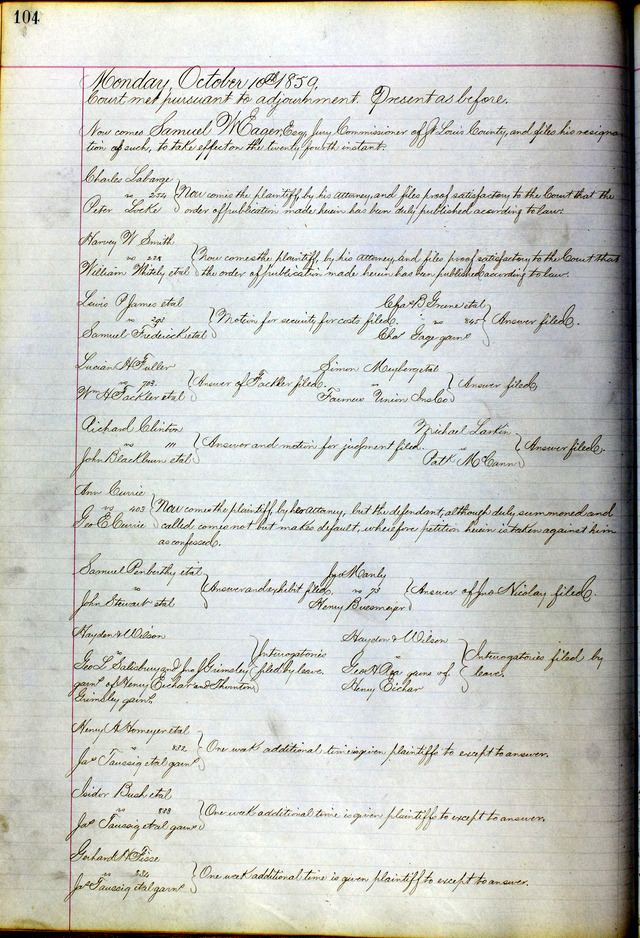 104
Monday, October 10th 1859.
Court met pursuant to adjournment. Present as before.
Now comes Samuel W Eager, Esq, Jury Commissioner of St Louis County, and files his resigna
tion as such, to take effect on the twenty fourth instant.
Charles Labarge
vs 254 Now comes the plaintiff, by his attorney, and files proof satisfactory to the Court that the
Peter Locke order of publication made herein has been duly published according to law.
Harvey W Smith
vs 228 Now comes the plaintiff, by his attorney, and files proof satisfactory to the Court that
William Whitely etal the order of publication made herein has been published according to law.
Lewis P James etal Chas B Greene etal
vs 291 Motion for security for costs filed. vs 345 Answer filed.
Samuel Frederick etal Chas Gage garn
Lucian H Fuller Simon Meyberg etal
vs 703 Answer of Fackler filed. vs Answer filed
Wm H Fackler etal Union Ins Co
Richard Clinton Michael Larkin
vs 111 Answer and motion for judgment filed. vs Answer filed.
John Blackburn etal Patk McCann
Ann Currie
vs 403 Now comes the plaintiff, by her attorney, but the defendant, although duly summoned and
Geo E Currie called comes not but makes default, wherefore petition herein is taken against him
as confessed.
Samuel Penberthy etal Jno Manly
vs Answer and exhibit filed. vs 73 Answer of Jno Nicolay filed.
John Stewart etal Henry Bussmeyer
Hayden & Wilson Hayden & Wilson
vs Interogatories vs Interogatories filed by
Geo L Salisbury and Jno J Grimsley filed by leave. Geo H Rea garns of leave.
garns of Henry Eichar and Thornton Henry Eichar
Grimsley garns
Henry A Homeyer etal
vs 832 One week additional time is given plaintiffs to except to answer.
Jas Taussig etal garns
Isidor Bush etal
vs 833 One week additional time is given plaintiffs to except to answer.
Jas Taussig etal garns
Gerhard H Tisse
vs 834 One week additional time is given plaintiff to except to answer.
Jas Taussig etal garns